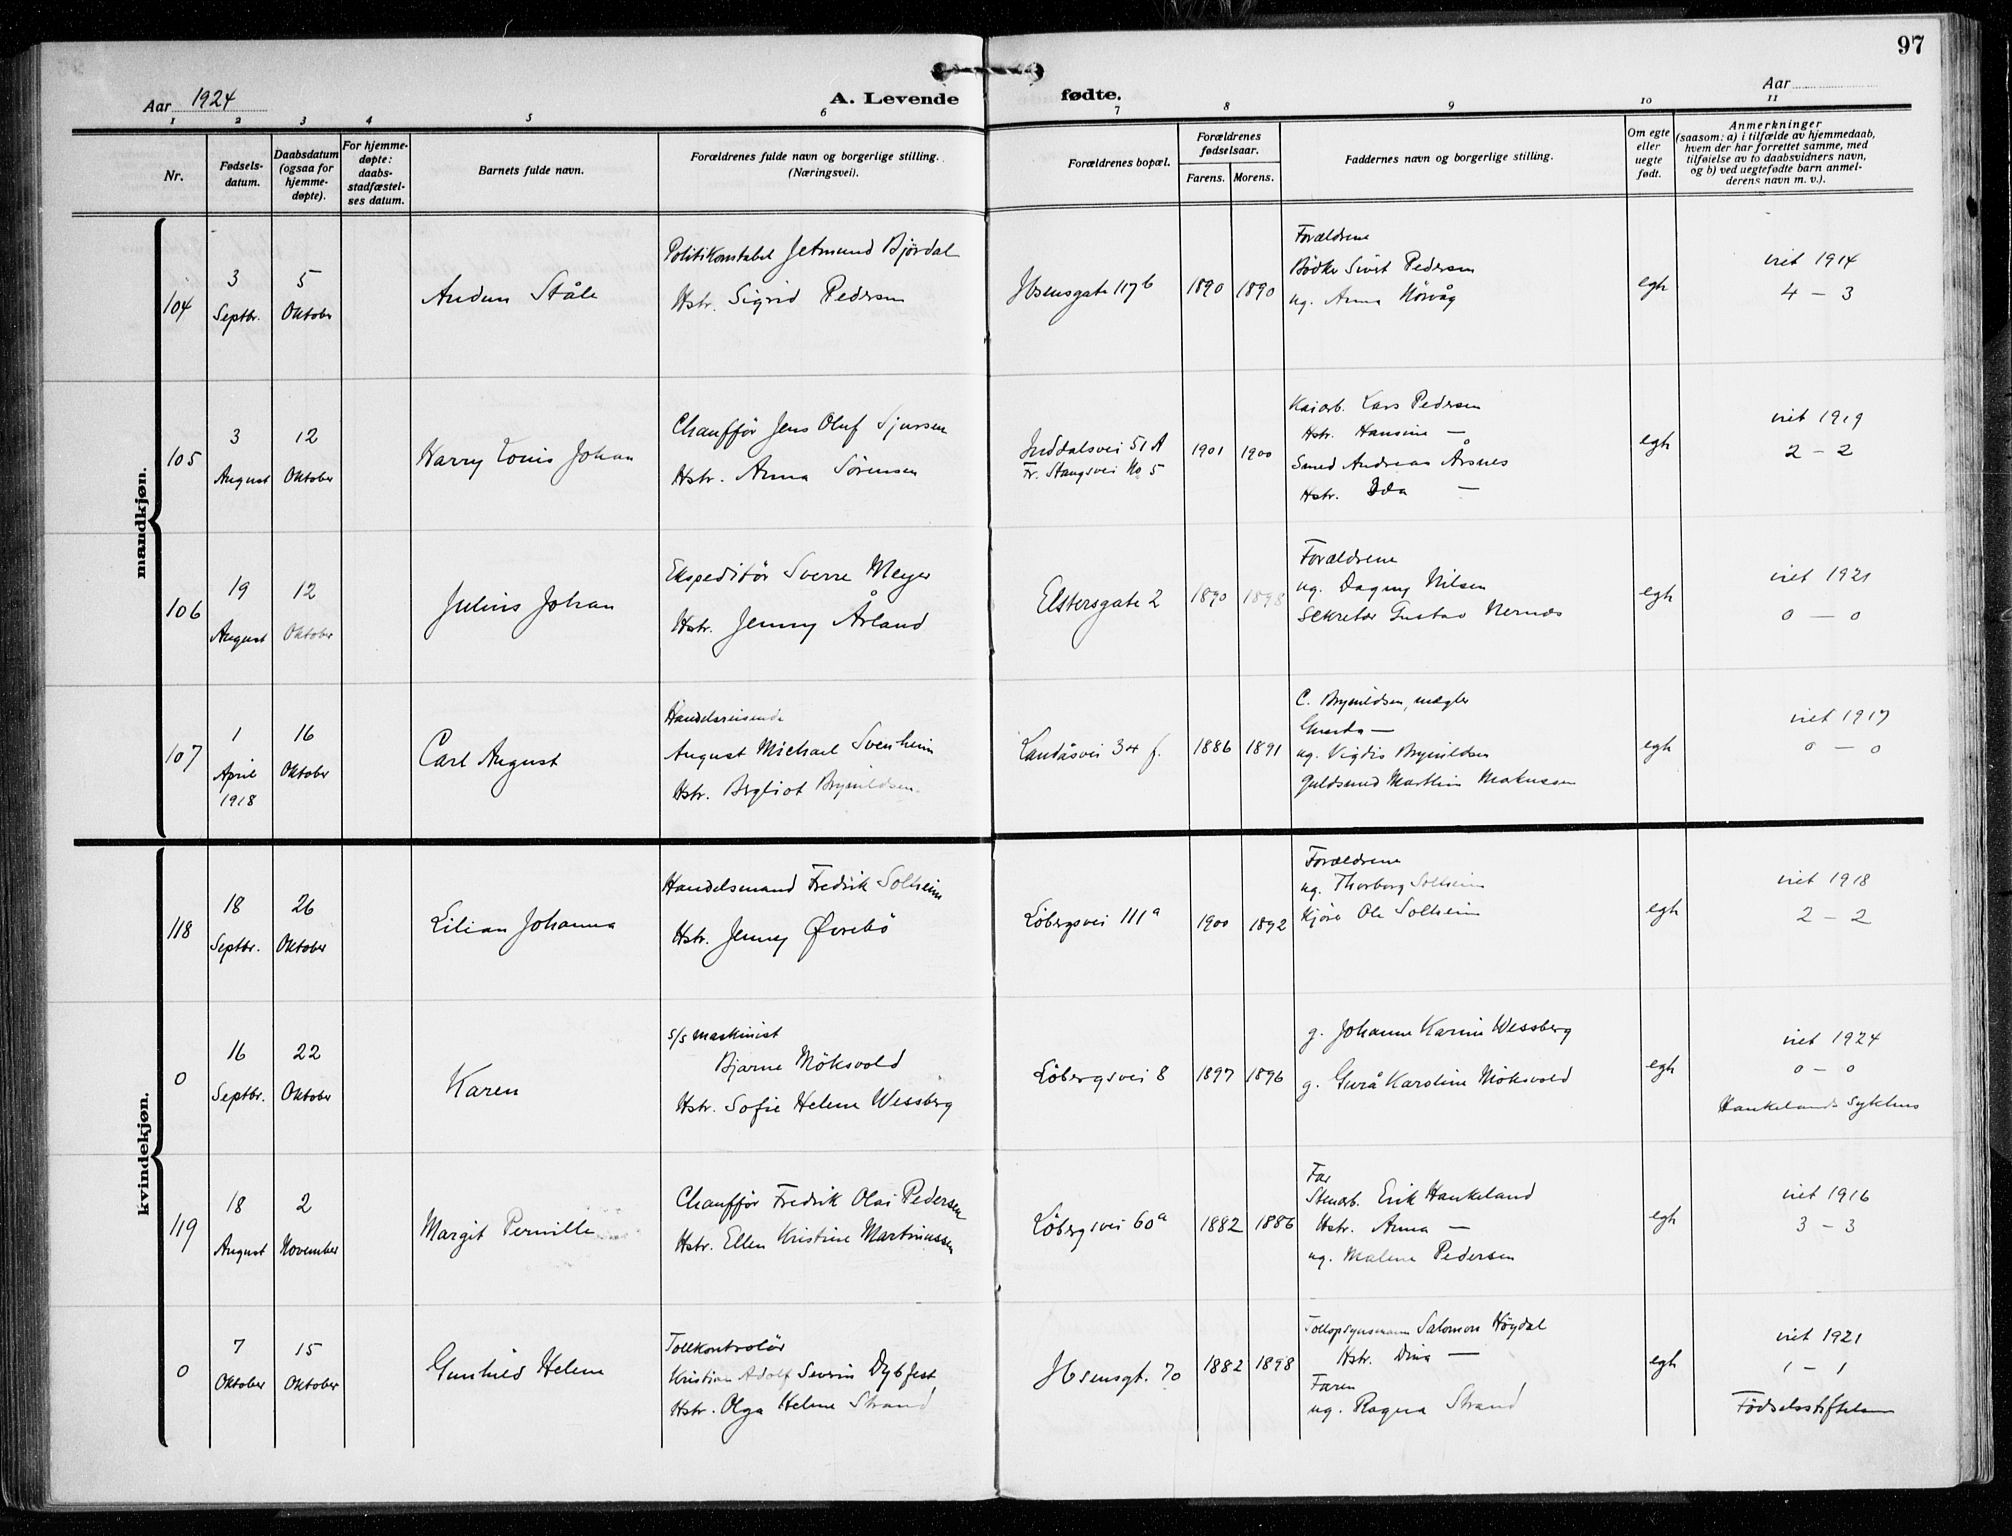 97
Aar 1924
A. Levende fødte.
Aar
1 2 3 4 5 6 7 8 9 10 11
Nr.
Fødsels-
datum.
Daabsdatum
(ogsaa for
hjemme-
døpte).
For hjemme-
døpte:
daabs-
stadfæstel-
ses datum.
Barnets fulde navn.
Forældrenes fulde navn og borgerlige stilling.
(Næringsvei).
Forældrenes bopæl.
Forældrenes
fødselsaar.
Farens. Morens.
Faddernes navn og borgerlige stilling.
Om egte
eller
uegte
født.
Anmerkninger
(saasom: a) i tilfælde av hjemmedaab,
hvem der har forrettet samme, med
tilføielse av to daabsvidners navn,
og b) ved uegtefødte barn anmel-
derens navn m. v.).
mandkjøn.
104
3
Septbr.
5
Oktober
Audun Ståle
Politikonstabel Jetmund Bjørdal
Hstr. Sigrid Pedersen
Ibsensgate 117b
1890 1890
Forældrene
Bødker Sivert Pedersen
ug. Anna Nørvåg
egte
viet 1914
4 – 3
105
3
August
12
Oktober
Harry Louis Johan
Chauffør Jens Oluf Sjursen
Hstr. Anna Sørensen
Inddalsvei 51 A
Fr. Stangsvei No 5
1901 1900
Kaiarb. Lars Pedersen
Hstr. Hansine –
Smed Andreas Årsnes
Hstr. Ida –
egte
viet 1919
2 – 2
106
19
August
12
Oktober
Julius Johan
Ekspeditør Sverre Meyer
Hstr. Jenny Årland
Elstersgate 2
1890 1898
Forældrene
ug. Dagny Nilsen
Sekretær Gustav Nernæs
egte
viet 1921
0 – 0
107
1
April
1918
16
Oktober
Carl August
Handelsreisende
August Michael Svenheim
Hstr. Bergliot Brynildsen
Landåsvei 34 f.
1886 1891
C. Brynildsen, mægler
–
ug. Vigdis Brynildsen
Guldsmed Marthin Makussen
egte
viet 1917
0 – 0
kvindekjøn.
118
18
Septbr.
26
Oktober
Lilian Johanna
Handelsmand Fredrik Solheim
Hstr. Jenny Øvrebø
Løbergsvei 111a
1900 1892
Forældrene
ug. Thorborg Solheim
Kjører Ole Solheim
egte
viet 1918
2 – 2
0
16
Septbr.
22
Oktober
Karen
s/s maskinist
Bjarne Möksvold
Hstr. Sofie Helene Wessberg
Løbergsvei 8
1897 1896
g. Johanne Karine Wessberg
g. Gurå Karoline Möksvold
egte
viet 1924
0 – 0
Haukelands Sykehus
119
18
August
2
November
Margit Pernille
Chauffør Fredrik Olai Pedersen
Hstr. Ellen Kristine Martinussen
Løbergsvei 60a
1882 1886
Far
Stenarb. Erik Haukeland
Hstr. Anna –
ug. Malene Pedersen
egte
viet 1916
3 – 3
0
7
Oktober
15
Oktober
Gunhild Helene
Tollkontrolør
Kristian Adolf Severin Dybfest
Hstr. Olga Helene Strand
Ibsensgt. 70
1882 1898
Tollopsynsmann Salomon Høydal
Hstr. Dina –
Faren
ug. Ragna Strand
egte
viet 1921
1 – 1
Fødselsstiftelsen